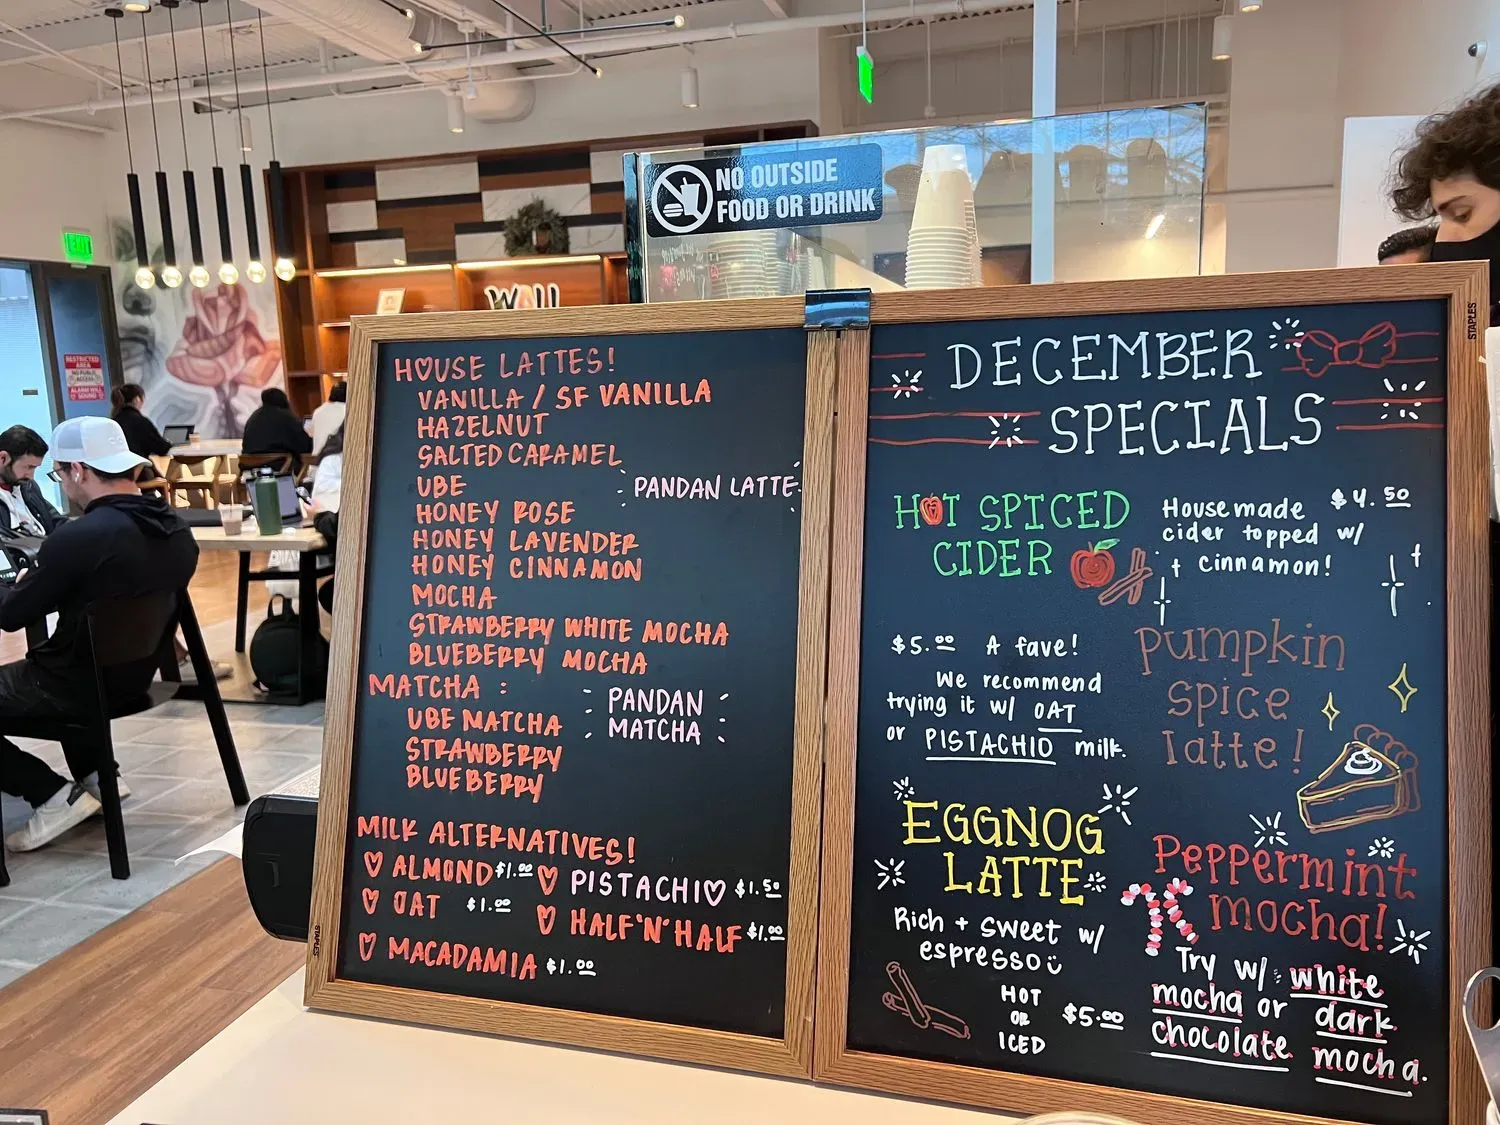 NO OUTSIDE
FOOD OR DRINK
EXIT
RESTRICTED
AREA
WALL
STAPLES
HOUSE LATTES!
VANILLA / SF VANILLA
HAZELNUT
SALTED CARAMEL
UBE
PANDAN LATTE
HONEY ROSE
HONEY LAVENDER
HONEY CINNAMON
MOCHA
STRAWBERRY WHITE MOCHA
BLUEBERRY MOCHA
MATCHA :
PANDAN
MATCHA
UBE MATCHA
STRAWBERRY
BLUEBERRY
MILK ALTERNATIVES!
ALMOND $1.00
PISTACHIO $1.50
OAT $1.00
HALF'N'HALF $1.00
MACADAMIA $1.00
STAPLES
DECEMBER
SPECIALS
HOT SPICED
CIDER
Housemade $4.50
cider topped w/
cinnamon!
$5.00 A fave!
We recommend
trying it w/ OAT
or PISTACHIO milk.
pumpkin
spice
latte!
EGGNOG
LATTE
Rich + sweet w/
espresso
HOT
OR
ICED
$5.00
Peppermint
mocha!
Try w/: white
mocha or dark
chocolate mocha.